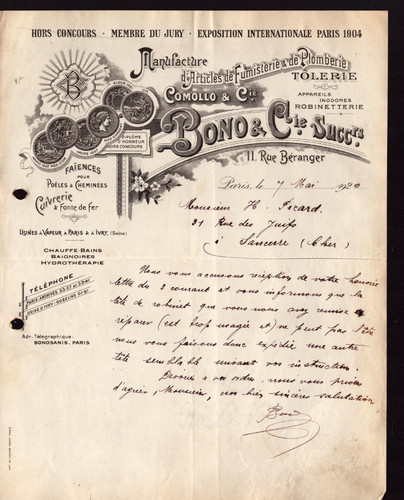 HORS CONCOURS - MEMBRE DU JURY - EXPOSITION INTERNATIONALE PARIS 1904
Manufacture
d'Articles de Fumisterie & de Plomberie
TÔLERIE
COMOLLO & Cie
APPAREILS
INODORES
ROBINETTERIE
BONO & Cie Succrs
11, Rue Béranger
B
DIPLÔME
D'HONNEUR
HORS CONCOURS
FAÏENCES
POUR
POÊLES & CHEMINÉES
Cuivrerie
& Fonte de Fer
USINES À VAPEUR À PARIS & À IVRY, (Seine)
CHAUFFE-BAINS
BAIGNOIRES
HYDROTHÉRAPIE
TÉLÉPHONE
Adr. Télégraphique:
BONOSANIS, PARIS
Paris, le 7 Mai 1920
Monsieur H. Picard
31 Rue des Juifs
à Sancerre (Cher)
Nous vous accusons réception de votre honorée
lettre du 3 courant et vous informons que la
tête de robinet que vous nous avez remise à
réparer (est trop usagée et) ne peut pas l'être
nous vous faisons donc expédié une autre
tête semblable suivant vos instruction.
Dévoués à vos ordres, nous vous prions
d'agréer, Monsieur, nos bien sincères salutations
Bono